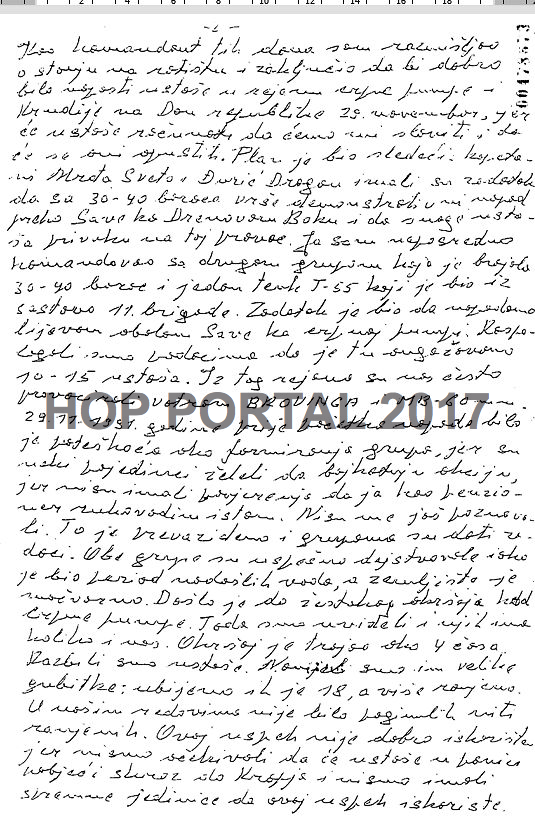 - 2 -
00473573
Kao komandant tih dana sam razmišljao
o stanju na ratištu i zaključio da bi dobro
bilo napasti ustaše u rejonu crpne pumpe i
Krndije na Dan republike 29. novembar, jer
će ustaše računati da ćemo mi slaviti i da
će se oni opustiti. Plan je bio sledeći: kapeta-
ni Mrđa Sveto i Đurić Dragan imali su zadatak
da sa 30-40 boraca vrše demonstrativni napad
preko Save ka Drenovom Boku i da snage usta-
ša privuku na taj pravac. Ja sam neposredno
komandovao sa drugom grupom koja je brojala
30-40 boraca i jedan tenk T-55 koji je bio iz
sastava 11. brigade. Zadatak je bio da napadamo
lijevom obalom Save ka crpnoj pumpi. Raspo-
lagali smo podacima da je tu angažovano
10-15 ustaša. Iz tog rejona su nas često
provocirali vatrom BROVINGA i MB-60 mm.
29.11.1991. godine prije početka napada bilo
je poteškoća oko formiranja grupa, jer su
neki pojedinci željeli da bojkotuju akciju,
jer nisu imali povjerenja da ja kao penzio-
ner rukovodim istom. Nisu me još poznava-
li. To je prevaziđeno i grupama su dati za-
daci. Obe grupe su uspešno dejstvovale iako
je bio period nadošlih voda, a zemljište je
močvarno. Došlo je do žestokog okršaja kod
crpne pumpe. Tada smo uvideli i njih ima
koliko i nas. Okršaj je trajao oko 4 časa.
Razbili smo ustaše. Nanijeli smo im velike
gubitke: ubijeno ih je 18, a više ranjeno.
U našim redovima nije bilo poginulih niti
ranjenih. Ovaj uspeh nije dobro iskorišten
jer nismo očekivali da će ustaše u panici
pobjeći skroz do Krapja i nismo imali
spremne jedinice da ovaj uspeh iskoriste.
HOP PORTAL 2017